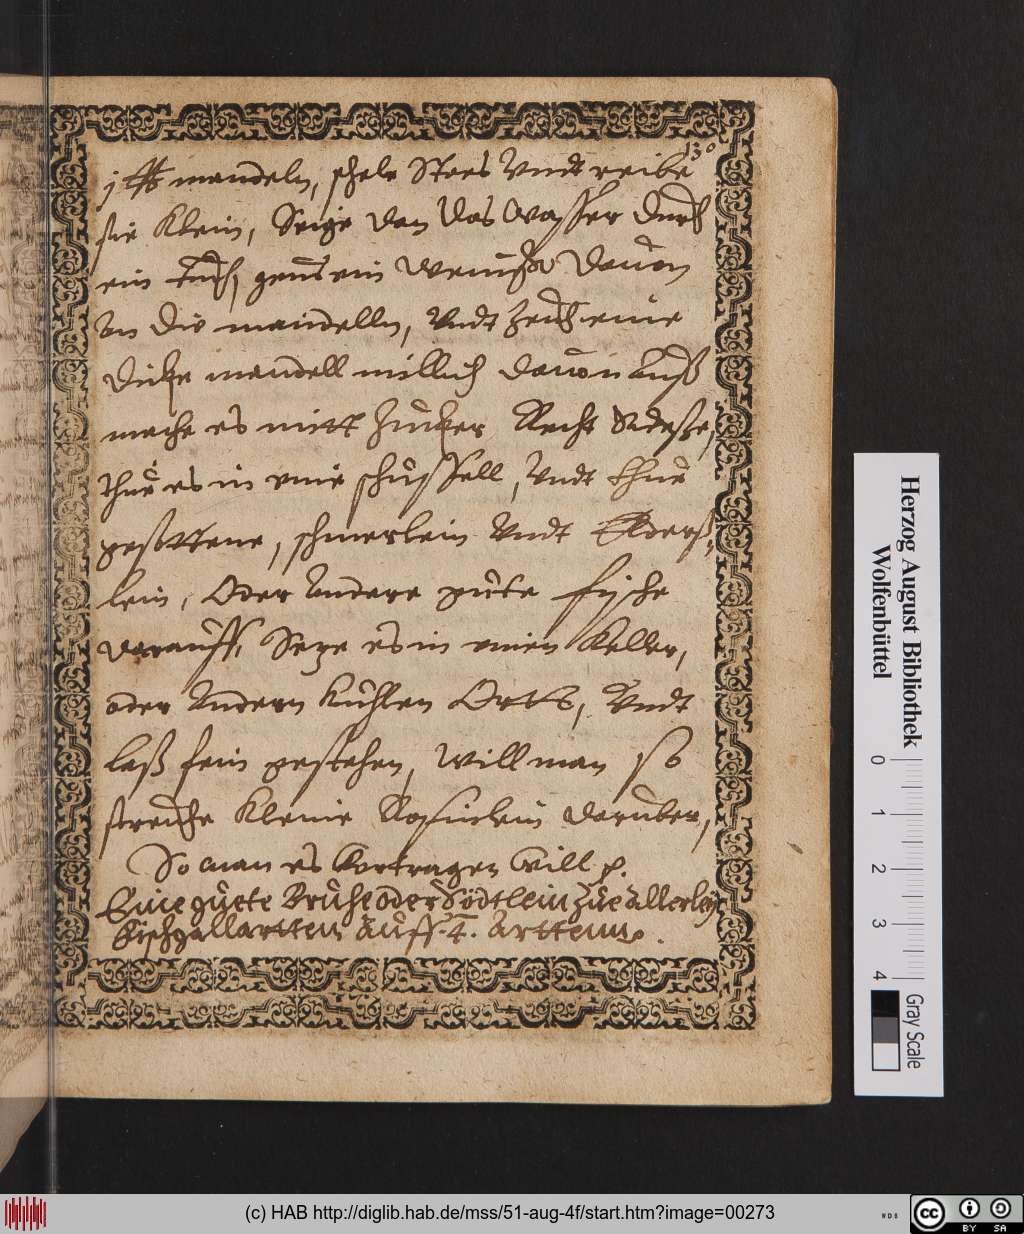 130
j ℔ mandeln, schele Stoes Vndt reibe
sie klein, Seige dan das Wasser durch
ein tuch, geus ein wenig davon
an die mandelln, Vndt Zeuch eine
dicke mandell millich davon auß
mache es mitt Zucker Recht
thue es in eine schüssell, Vndt thue
gesottene, schmerlein Vndt
lein, Oder Andere gute fische
darauff, Seze es in einen Keller,
oder Andern kühlen Ortt, Vndt
laß fein gestehen, Will man so
streuche kleine Rosinlein darüber,
So man es Vortragen Will
Eine guete Brühe oder Södtlein Zue allerley
Fischgallartten Auff. 4. Artten.
Herzog August Bibliothek
Wolfenbüttel
0 1 2 3 4
Gray Scale
(c) HAB http://diglib.hab.de/mss/51-aug-4f/start.htm?image=00273
WDB
cc BY SA